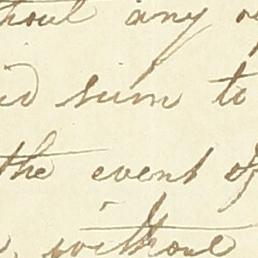 thout any
id sum to
the event of
without